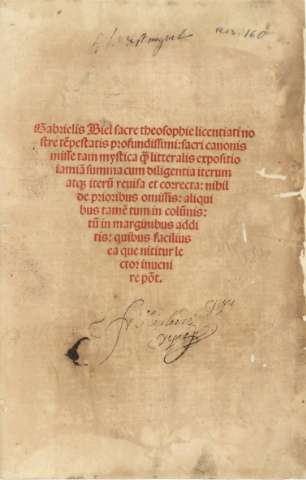 Gabrielis Biel sacre theosophie licentiati no
stre tēpestatis profundissimi: sacri canonis
misse tam mystica q̃ litteralis expositio
iamiā summa cum diligentia iterum
atq; iterū reuisa et correcta: nihil
de prioribus omissis: aliqui
bus tamē tum in colūnis:
tū in marginibus addi
tis: quibus facilius
ea que nititur le
ctor inueni
re pōt.